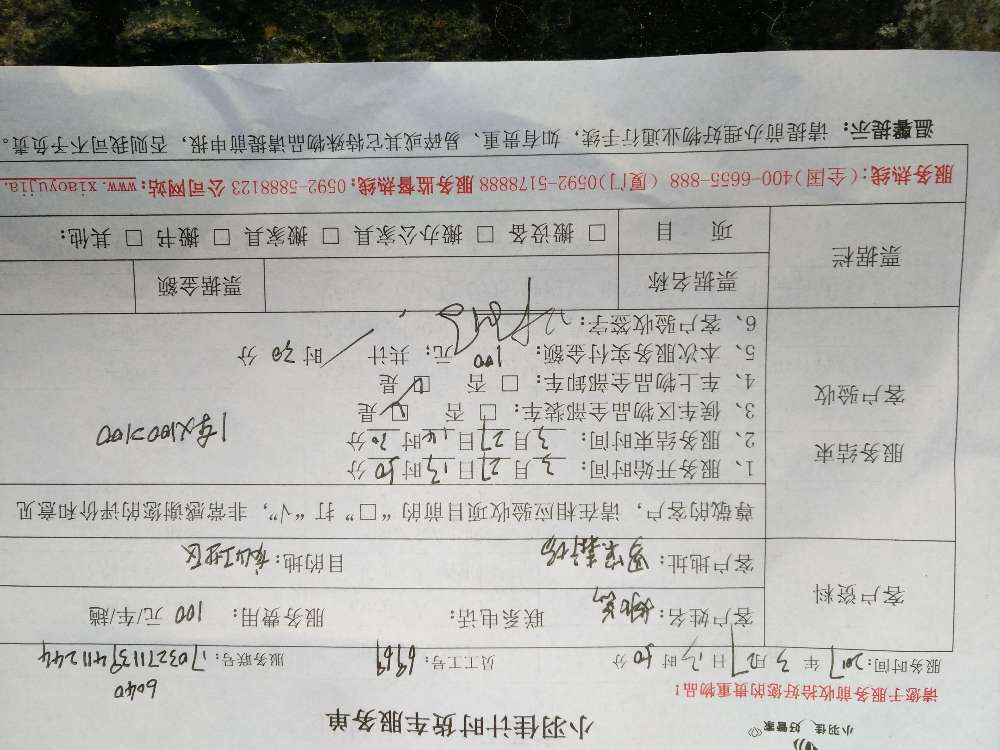 小羽佳，好管家
小羽佳计时货车服务单
请您于服务前收拾好您的贵重物品！
6040
服务时间：2017年3月27日13时50分 员工号：6969 服务联号：1703271139411244
客户资料
客户姓名： 联系电话： 服务费用：100 元/车/趟
客户地址： 目的地：
尊敬的客户，请在相应验收项目前的“□”打“√”，非常感谢您的评价和意见
服务结束
客户验收
1、服务开始时间：3月27日13时50分
2、服务结束时间：3月27日14时20分
3、候车区物品全部装车：□ 否 □ 是
4、车上物品全部卸车：□ 否 □ 是
1车×100=100
5、本次服务实付金额：100元；共计 时30分
6、客户验收签字：
票据栏
票据名称 票据金额
项 目 □ 搬设备 □ 搬办公家具 □ 搬家具 □ 搬书 □ 其他：
服务热线：(全国)400-6655-888 (厦门)0592-5178888 服务监督热线：0592-5888123 公司网站：www.xiaoyujia.
温馨提示：请提前办理好物业通行手续，如有贵重、易碎或其它特殊物品请提前申报，否则我司不予负责。